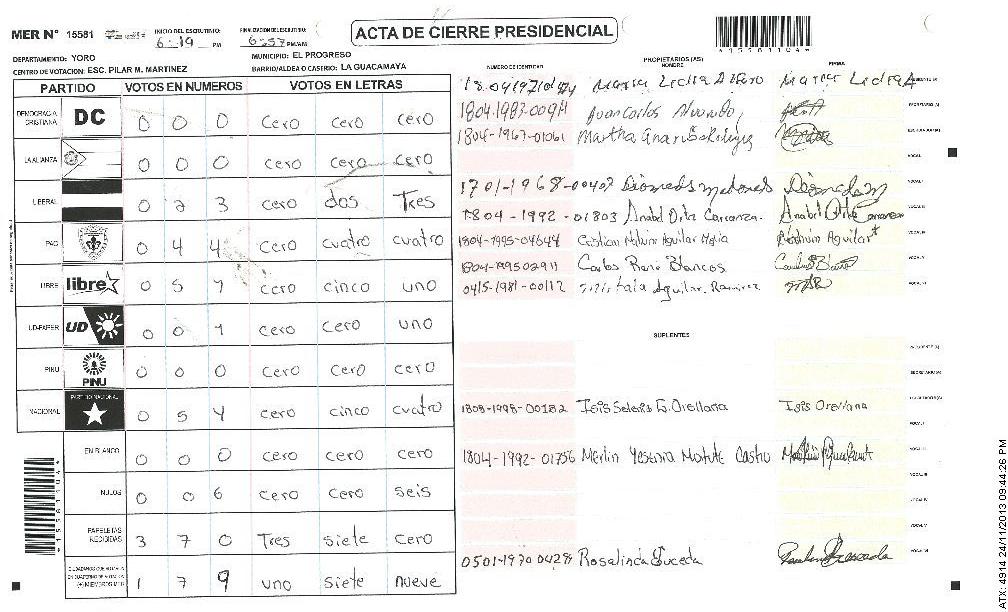 MER N° 15581 INICIO DEL ESCRUTINIO: 6:19 PM FINALIZACION DEL ESCRUTINIO: 6:57 PM/AM ACTA DE CIERRE PRESIDENCIAL
*155811044*
DEPARTAMENTO: YORO MUNICIPIO: EL PROGRESO
CENTRO DE VOTACION: ESC. PILAR M. MARTINEZ BARRIO/ALDEA O CASERIO: LA GUACAMAYA
PARTIDO VOTOS EN NUMEROS VOTOS EN LETRAS
DEMOCRACIA CRISTIANA DC 0 0 0 cero cero cero
LA ALIANZA 0 0 0 cero cero cero
LIBERAL 0 2 3 cero dos Tres
PAC 0 4 4 cero cuatro cuatro
LIBRE libre 0 5 1 cero cinco uno
UD-FAPER UD 0 0 1 cero cero uno
PINU PINU 0 0 0 cero cero cero
NACIONAL PARTIDO NACIONAL 0 5 4 cero cinco cuatro
EN BLANCO 0 0 0 cero cero cero
NULOS 0 0 6 cero cero seis
PAPELETAS RECIBIDAS 3 7 0 Tres siete cero
CIUDADANOS QUE VOTARON EN CUADERNO DE VOTACION (+) MIEMBROS MER 1 7 9 uno siete nueve
*155811044*
NUMERO DE IDENTIDAD PROPIETARIOS (AS) NOMBRE FIRMA
Maria Lidia Alfaro
1804-1983-00911 Juan Carlos Alvarado
1804-1967-01061 Martha
VOCAL
1701-1968-00407
1804-1992-01803 Anabel Orta Carranza
1804-1995-04644 Cristian Aguilar Mejia
Carlos Rene Blancos
0415-1981-00112 Aguilar Ramirez
SUPLENTES
1808-1998-00182 Isis Selenis G. Orellana Isis Orellana
1804-1992-01756 Merlin Yesenia Matute Castro
Rosalinda Euceda
ATX: 4914 24/11/2013 09:44:26 PM